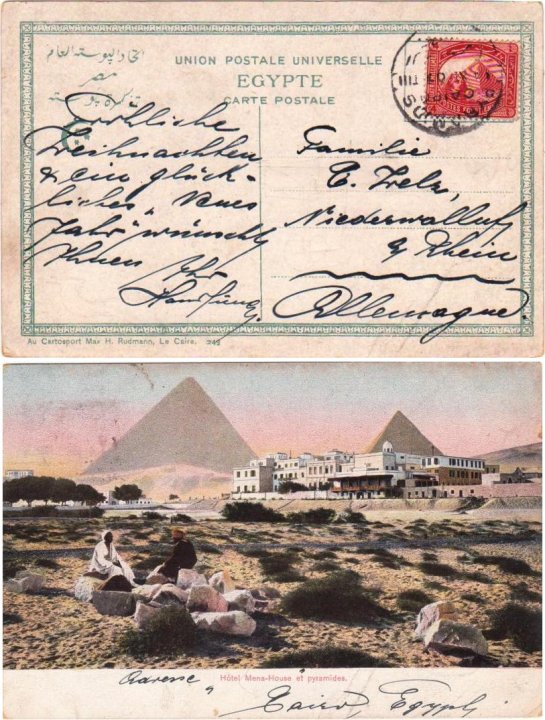 اتحاد البوسته العام
مصر
تذكرة بوسته
UNION POSTALE UNIVERSELLE
EGYPTE
CARTE POSTALE
Fröhliche
Weihnachten
& ein glück-
liches Neues
Jahr wünscht
Ihnen Ihr
Familie
E.
Niederwalluf
a/ Rhein
Allemagne
Au Cartosport Max H. Rudmann, Le Caire. 243
Hôtel Mena-House et pyramides.
Adresse
Cairo, Egypt.